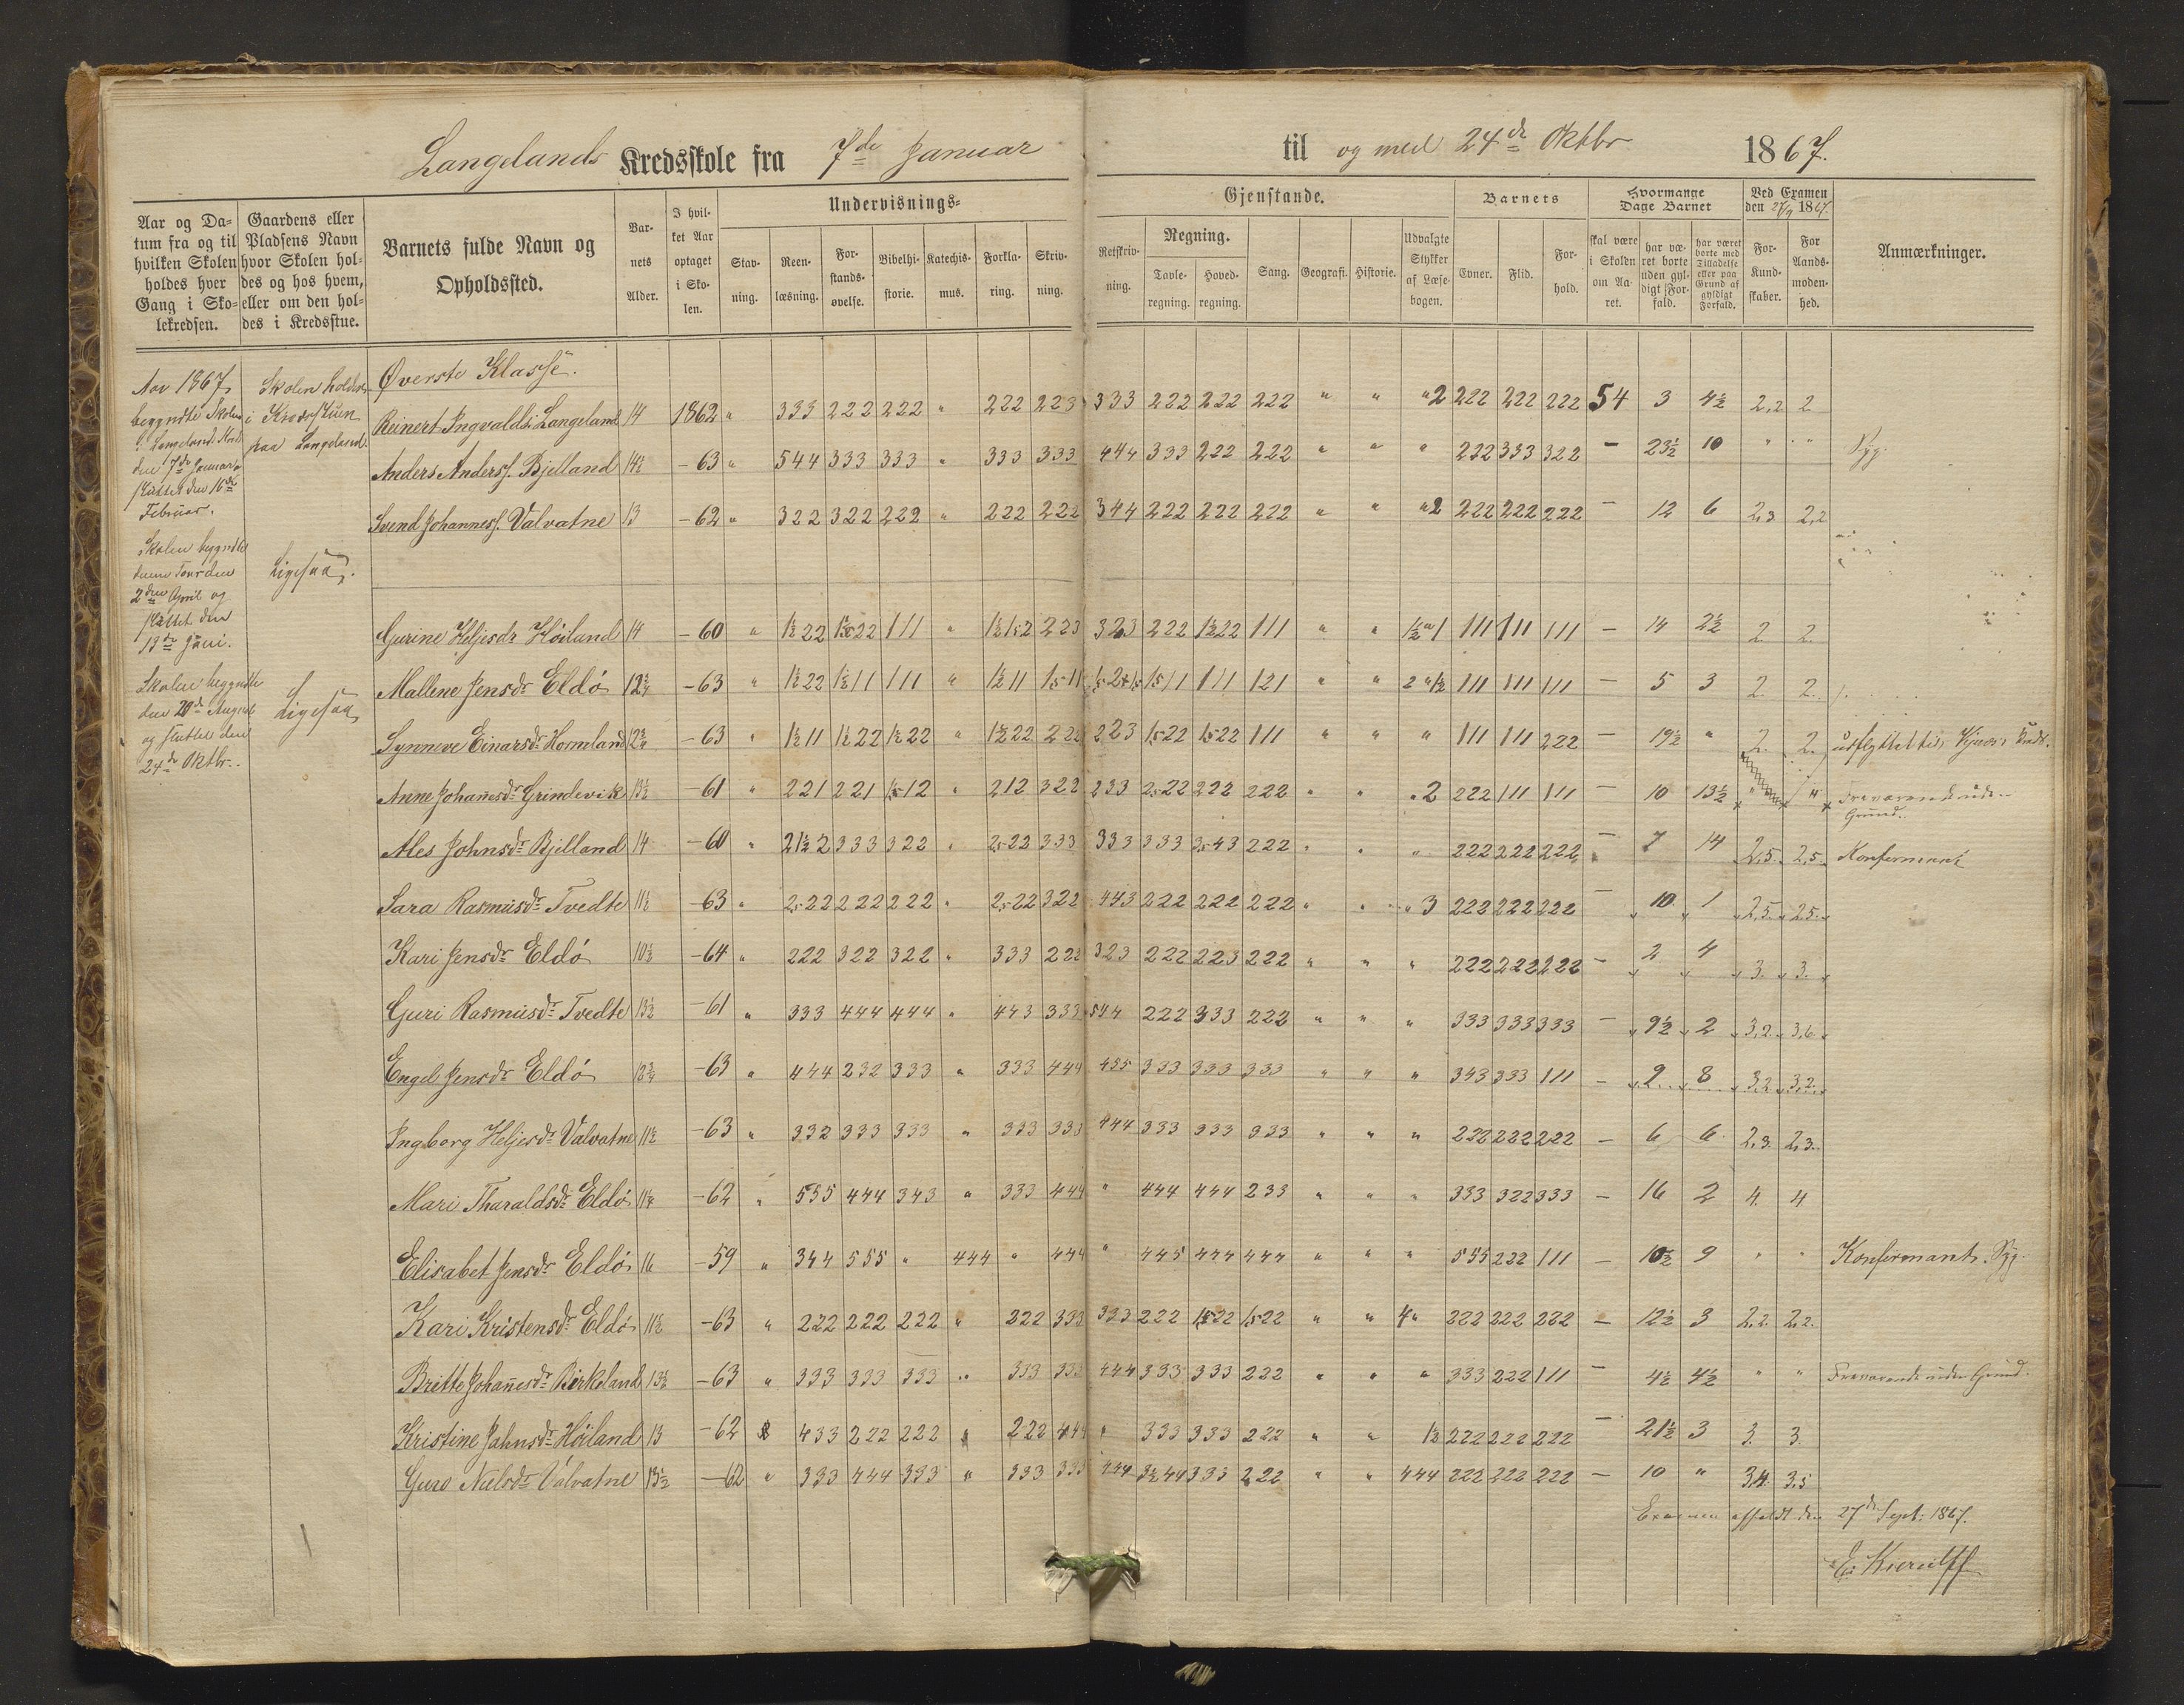 Langelands Kredsskole fra 7de Januar til og med 24de Oktbr 1867.
Aar og Datum fra og til hvilken Skolen holdes hver Gang i Skolekredsen.
Gaardens eller Pladsens Navn hvor Skolen holdes og hos hvem, eller om den holdes i Kredsstue.
Barnets fulde Navn og Opholdssted.
Barnets Alder.
I hvilket Aar optaget i Skolen.
Undervisnings-
Stavning. Reenlæsning. Forstandsøvelse. Bibelhistorie. Katechismus. Forklaring. Skrivning.
Gjenstande.
Retskrivning. Regning. Tavleregning. Hovedregning. Sang. Geografi. Historie. Udvalgte Stykker af Læsebogen.
Barnets
Evner. Flid. Forhold.
Hvormange Dage Barnet
skal være i Skolen om Aaret. har været borte uden gyldigt Forfald. har været borte med Tilladelse eller paa Grund af gyldigt Forfald.
Ved Examen den 27/9 1867.
For Kundskaber. For Aandsmodenhed.
Anmærkninger.
Aar 1867
begyndte Skolen
i Langelands Kreds
den 7de Januar o
sluttet den 16de
Februar.
Skolen holdes
i Kredsstuen
paa Langeland.
Skolen begyndte
denne Tour den
2den April og
sluttet den
13de Juni.
Ligesaa.
Skolen begyndte
den 20de August
og sluttet den
24de Oktbr.
Ligesaa
Øverste Klasse.
Reinert Ingvalds. Langeland 14 1862 " 333 222 222 " 222 223 333 222 222 222 " " "2 222 222 222 54 3 4½ 2,2 2
Anders Anders. Bjelland 14½ -63 " 544 333 333 " 333 333 444 333 222 222 " " " 222 333 322 - 23½ 10 " " Syg.
Svend Johannes. Valvatne 13 -62 " 322 322 222 " 222 222 344 222 222 222 " " "2 222 222 222 - 12 6 2,3 2,2
Gurine Heljesdr Høiland 14 -60 " 1½22 1½22 111 " 1½1½2 223 323 222 1½22 111 " " 1½"1 111 111 111 - 14 2½ 2 2
Mallene Jensdr Eldø 12¾ -63 " 1½22 1½11 111 " 1½11 1,511 1,511 111 121 " " 2"1½ 111 111 111 - 5 3 2. 2.
Synneve Einarsdr Hormland 12¾ -63 " 1½11 1½22 1½22 " 1½22 222 223 1,522 1,522 111 " " " 111 111 222 - 19½ " 2. 2. udflyttet til
Anne Johanesdr Grindevik 13½ -61 " 221 221 1,512 " 212 322 233 2,522 222 222 " " "2 222 111 111 - 10 13½ " " Fraværende uden Grund.
Ales Johnsdr Bjelland 14 -60 " 21½2 333 322 " 2,522 333 333 333 3,543 222 " " " 222 222 222 - 7 14 2,5. 2,5. Konfermant
Sara Rasmusdr Tvedte 11½ -63 " 2,522 222 222 " 2,522 322 443 222 222 222 " " "3 222 222 222 - 10 1 2,5. 2,5.
Kari Jensdr Eldø 10½ -64 " 222 322 322 " 333 222 323 222 223 222 " " " 222 222 222 - 2 4 3. 3.
Guri Rasmusdr Tvedte 13½ -61 " 333 444 444 " 443 333 544 222 333 222 " " " 333 333 333 - 9½ 2 3,2. 3,6.
Engel Jensdr Eldø -63 " 444 232 333 " 333 444 455 333 333 333 " " " 343 333 111 - 2 8 3,2 3,2.
Ingborg Heljesdr Valvatne 11½ -63 " 332 333 333 " 333 333 444 333 333 333 " " " 222 222 222 - 6 6 2,3. 2,3.
Mari Tharaldsdr Eldø -62 " 555 444 343 " 333 444 " 444 444 233 " " " 333 322 333 - 16 2 4. 4.
Elisabet Jensdr Eldø 16 -59 " 344 555 " 444 " 444 " 445 444 444 " " " 555 222 111 - 10½ 9 " " Konfermant. Syg.
Kari Kristensdr Eldø 11½ -63 " 222 222 222 " 222 333 333 222 1,522 1,522 " " 4" 222 222 222 - 12½ 3 2,2. 2,2.
Britte Johanesdr Birkeland 13½ -63 " 333 333 333 " 333 333 444 333 333 222 " " " 333 222 111 - 4½ 4½ " " Fraværende uden Grund.
Kristine Johnsdr Høiland 13 -62 433 222 222 " 222 444 " 333 333 222 " " 1½ 222 222 222 - 21½ 3 3. 3.
Guro Nielsdr Valvatne 13½ -62 " 333 444 333 " 333 333 444 3½44 333 222 " " 444 222 222 222 - 10 " 3,4. 3,5
Examen afholdt den 27de Sept: 1867.
E: Kierulff